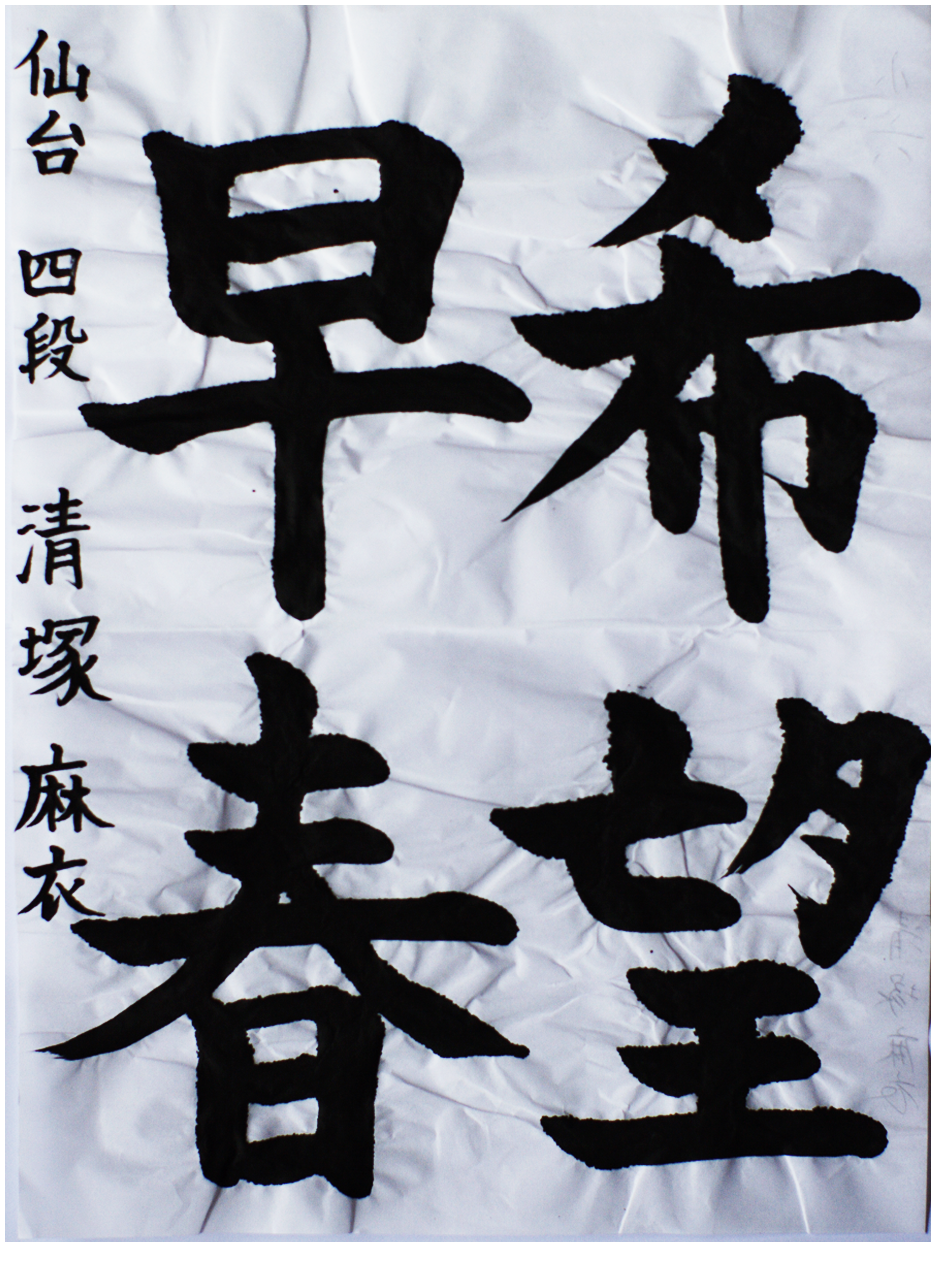 希望
早春
仙台 四段 清塚 麻衣